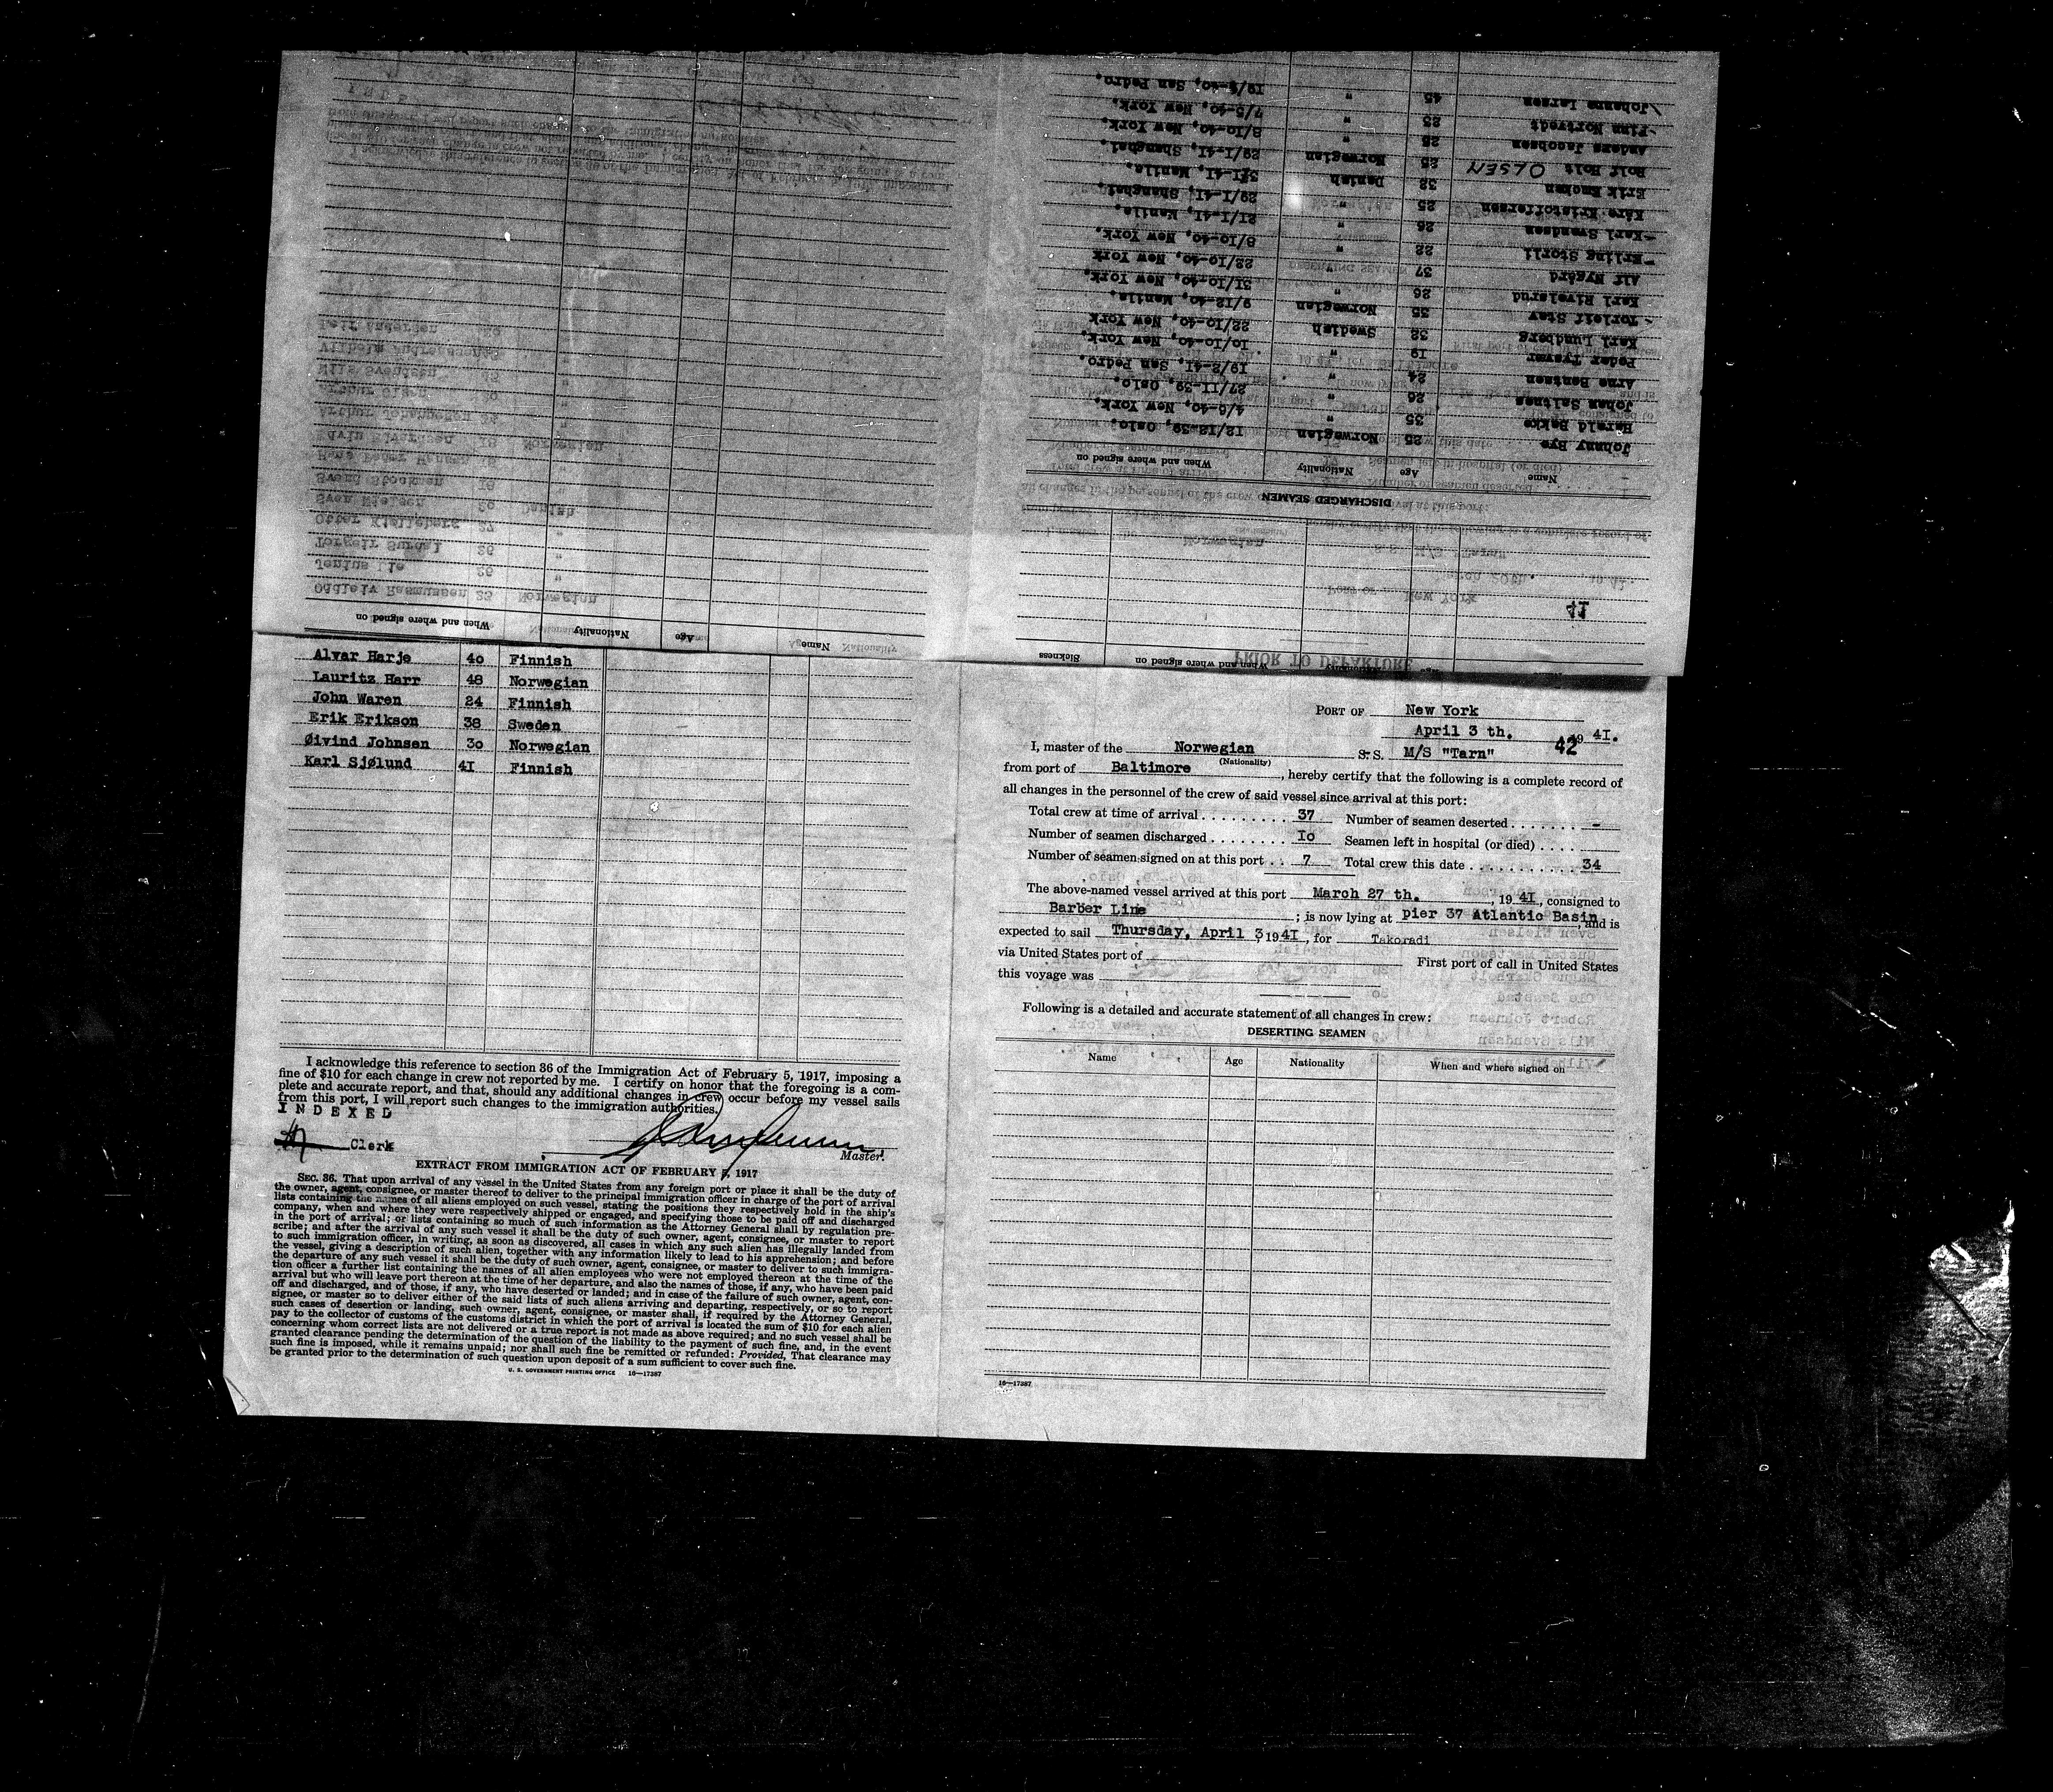 Alvar Harje 40 Finnish
Lauritz Harr 48 Norwegian
John Waren 24 Finnish
Erik Erikson 38 Sweden
Øivind Johnsen 30 Norwegian
Karl Sjølund 4I Finnish
I acknowledge this reference to section 36 of the Immigration Act of February 5, 1917, imposing a
fine of $10 for each change in crew not reported by me. I certify on honor that the foregoing is a com-
plete and accurate report, and that, should any additional changes in crew occur before my vessel sails
from this port, I will report such changes to the immigration authorities.
INDEXED
Clerk
Master.
EXTRACT FROM IMMIGRATION ACT OF FEBRUARY 5, 1917
SEC. 36. That upon arrival of any vessel in the United States from any foreign port or place it shall be the duty of
the owner, agent, consignee, or master thereof to deliver to the principal immigration officer in charge of the port of arrival
lists containing the names of all aliens employed on such vessel, stating the positions they respectively hold in the ship's
company, when and where they were respectively shipped or engaged, and specifying those to be paid off and discharged
in the port of arrival; or lists containing so much of such information as the Attorney General shall by regulation pre-
scribe; and after the arrival of any such vessel it shall be the duty of such owner, agent, consignee, or master to report
to such immigration officer, in writing, as soon as discovered, all cases in which any such alien has illegally landed from
the vessel, giving a description of such alien, together with any information likely to lead to his apprehension; and before
the departure of any such vessel it shall be the duty of such owner, agent, consignee, or master to deliver to such immigra-
tion officer a further list containing the names of all alien employees who were not employed thereon at the time of the
arrival but who will leave port thereon at the time of her departure, and also the names of those, if any, who have been paid
off and discharged, and of those, if any, who have deserted or landed; and in case of the failure of such owner, agent, con-
signee, or master so to deliver either of the said lists of such aliens arriving and departing, respectively, or so to report
such cases of desertion or landing, such owner, agent, consignee, or master shall, if required by the Attorney General,
pay to the collector of customs of the customs district in which the port of arrival is located the sum of $10 for each alien
concerning whom correct lists are not delivered or a true report is not made as above required; and no such vessel shall be
granted clearance pending the determination of the question of the liability to the payment of such fine, and, in the event
such fine is imposed, while it remains unpaid; nor shall such fine be remitted or refunded: Provided, That clearance may
be granted prior to the determination of such question upon deposit of a sum sufficient to cover such fine.
U. S. GOVERNMENT PRINTING OFFICE 16—17387
PORT OF New York
April 3 th. 19 4I.
42
I, master of the Norwegian S. S. M/S "Tarn"
(Nationality)
from port of Baltimore, hereby certify that the following is a complete record of
all changes in the personnel of the crew of said vessel since arrival at this port:
Total crew at time of arrival 37 Number of seamen deserted -
Number of seamen discharged I0 Seamen left in hospital (or died)
Number of seamen signed on at this port 7 Total crew this date 34
The above-named vessel arrived at this port March 27 th., 19 4I, consigned to
Barber Line; is now lying at pier 37 Atlantic Basin, and is
expected to sail Thursday, April 3, 19 4I, for Takoradi
via United States port of First port of call in United States
this voyage was
Following is a detailed and accurate statement of all changes in crew:
DESERTING SEAMEN
Name Age Nationality When and where signed on
16—17387
41
Sickness
DISCHARGED SEAMEN
Name Age Nationality When and where signed on
Johnny Bye 25 Norwegian I2/I2-39, Oslo.
Harald Bakke 35 " 4/6-40, New York.
Johan Saltnes 26 " 27/II-39, Oslo.
Arne Bentsen 24 " I9/2-4I, San Pedro.
Peder Tysver I9 " I0/I0-40, New York.
Karl Lundberg 32 Swedish 22/I0-40, New York
Torleif Stav 35 Norwegian 9/I2-40, Manila.
Karl Rivelsrud 26 " 3I/I0-40, New York.
Alf Nygård 37 22/I0-40, New York
Erling Storli 22 " 8/I0-40, New York.
Karl Svendsen 26 " 2I/I-4I, Manila.
Kåre Kristoffersen 25 29/I-4I, Shanghai.
Erik 32 Danish I-4I, Manila.
Rolf Holt OLSEN 25 Norwegian 29/I-4I, Shanghai.
Anders Jacobsen 25 " 8/I0-40, New York.
Finn Nortvedt 23 " 7/5-40, New York.
Johannes Larsen 45 " San Pedro.
Name Age Nationality When and where signed on
Oddleiv Rasmussen 23 Norwegian
Jenius Lie 26 "
Torgeir Surdal 26 "
Otter 27 "
Sven Nielsen 20 Danish
Svend
Hans Peder
Edvin Norwegian
Arthur Johannesen
Olsen
Nils Svendsen
Vilhelm
Leif Andersen
PRIOR TO DEPARTURE